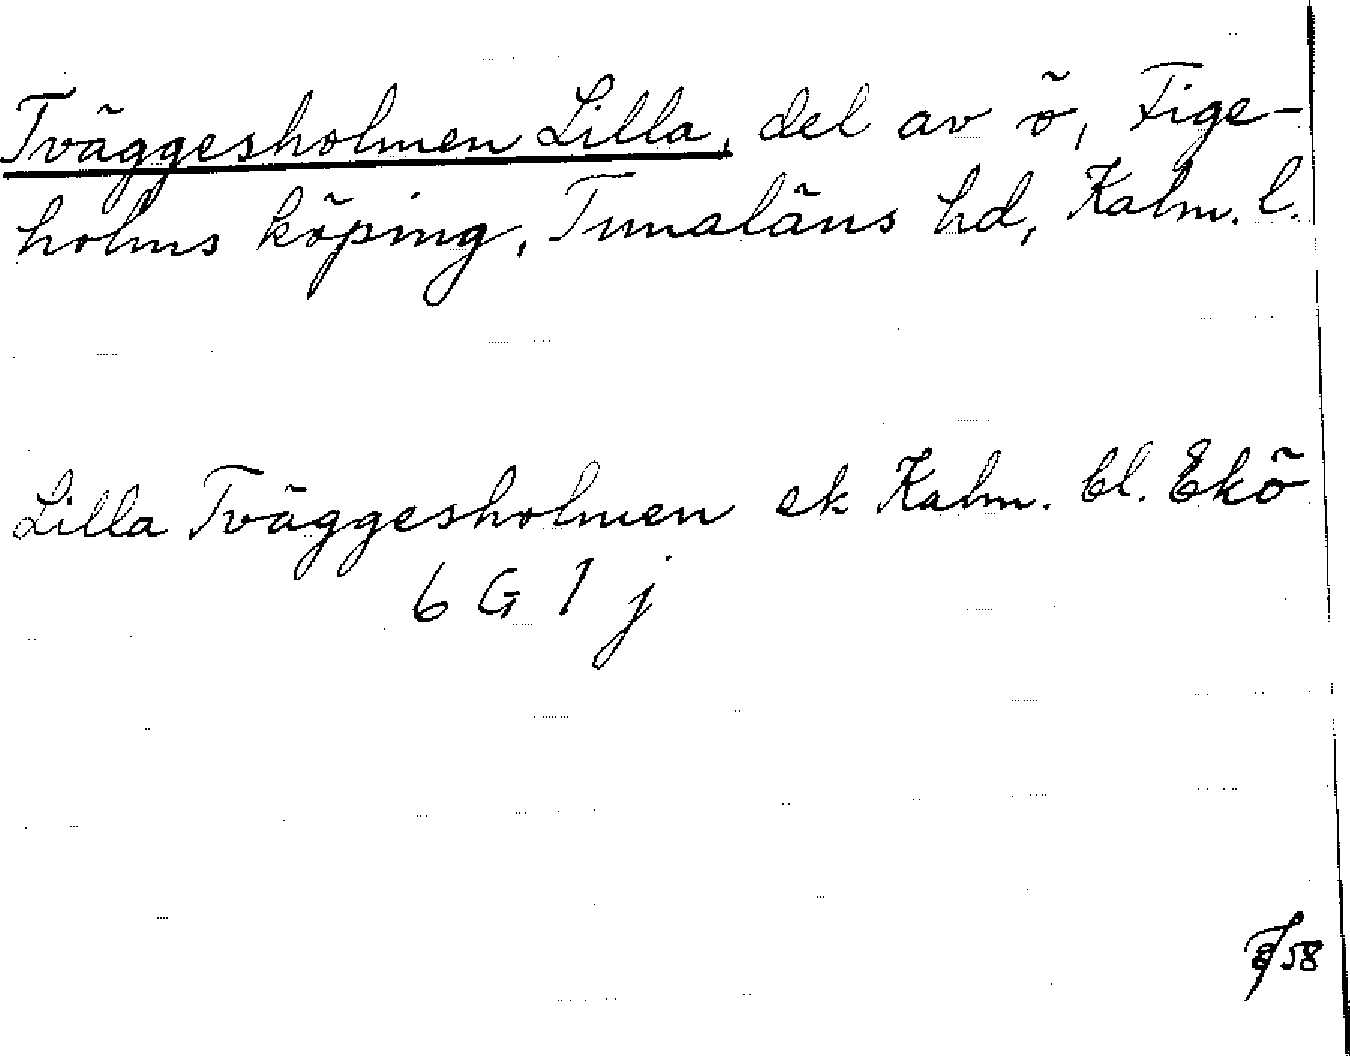 Tväggesholmen Lilla, del av ö, Fige-
holms köping, Tunaläns hd, Kalm. l.
Lilla Tväggesholmen ek Kalm. bl. Ekö
6 G 1 j
58